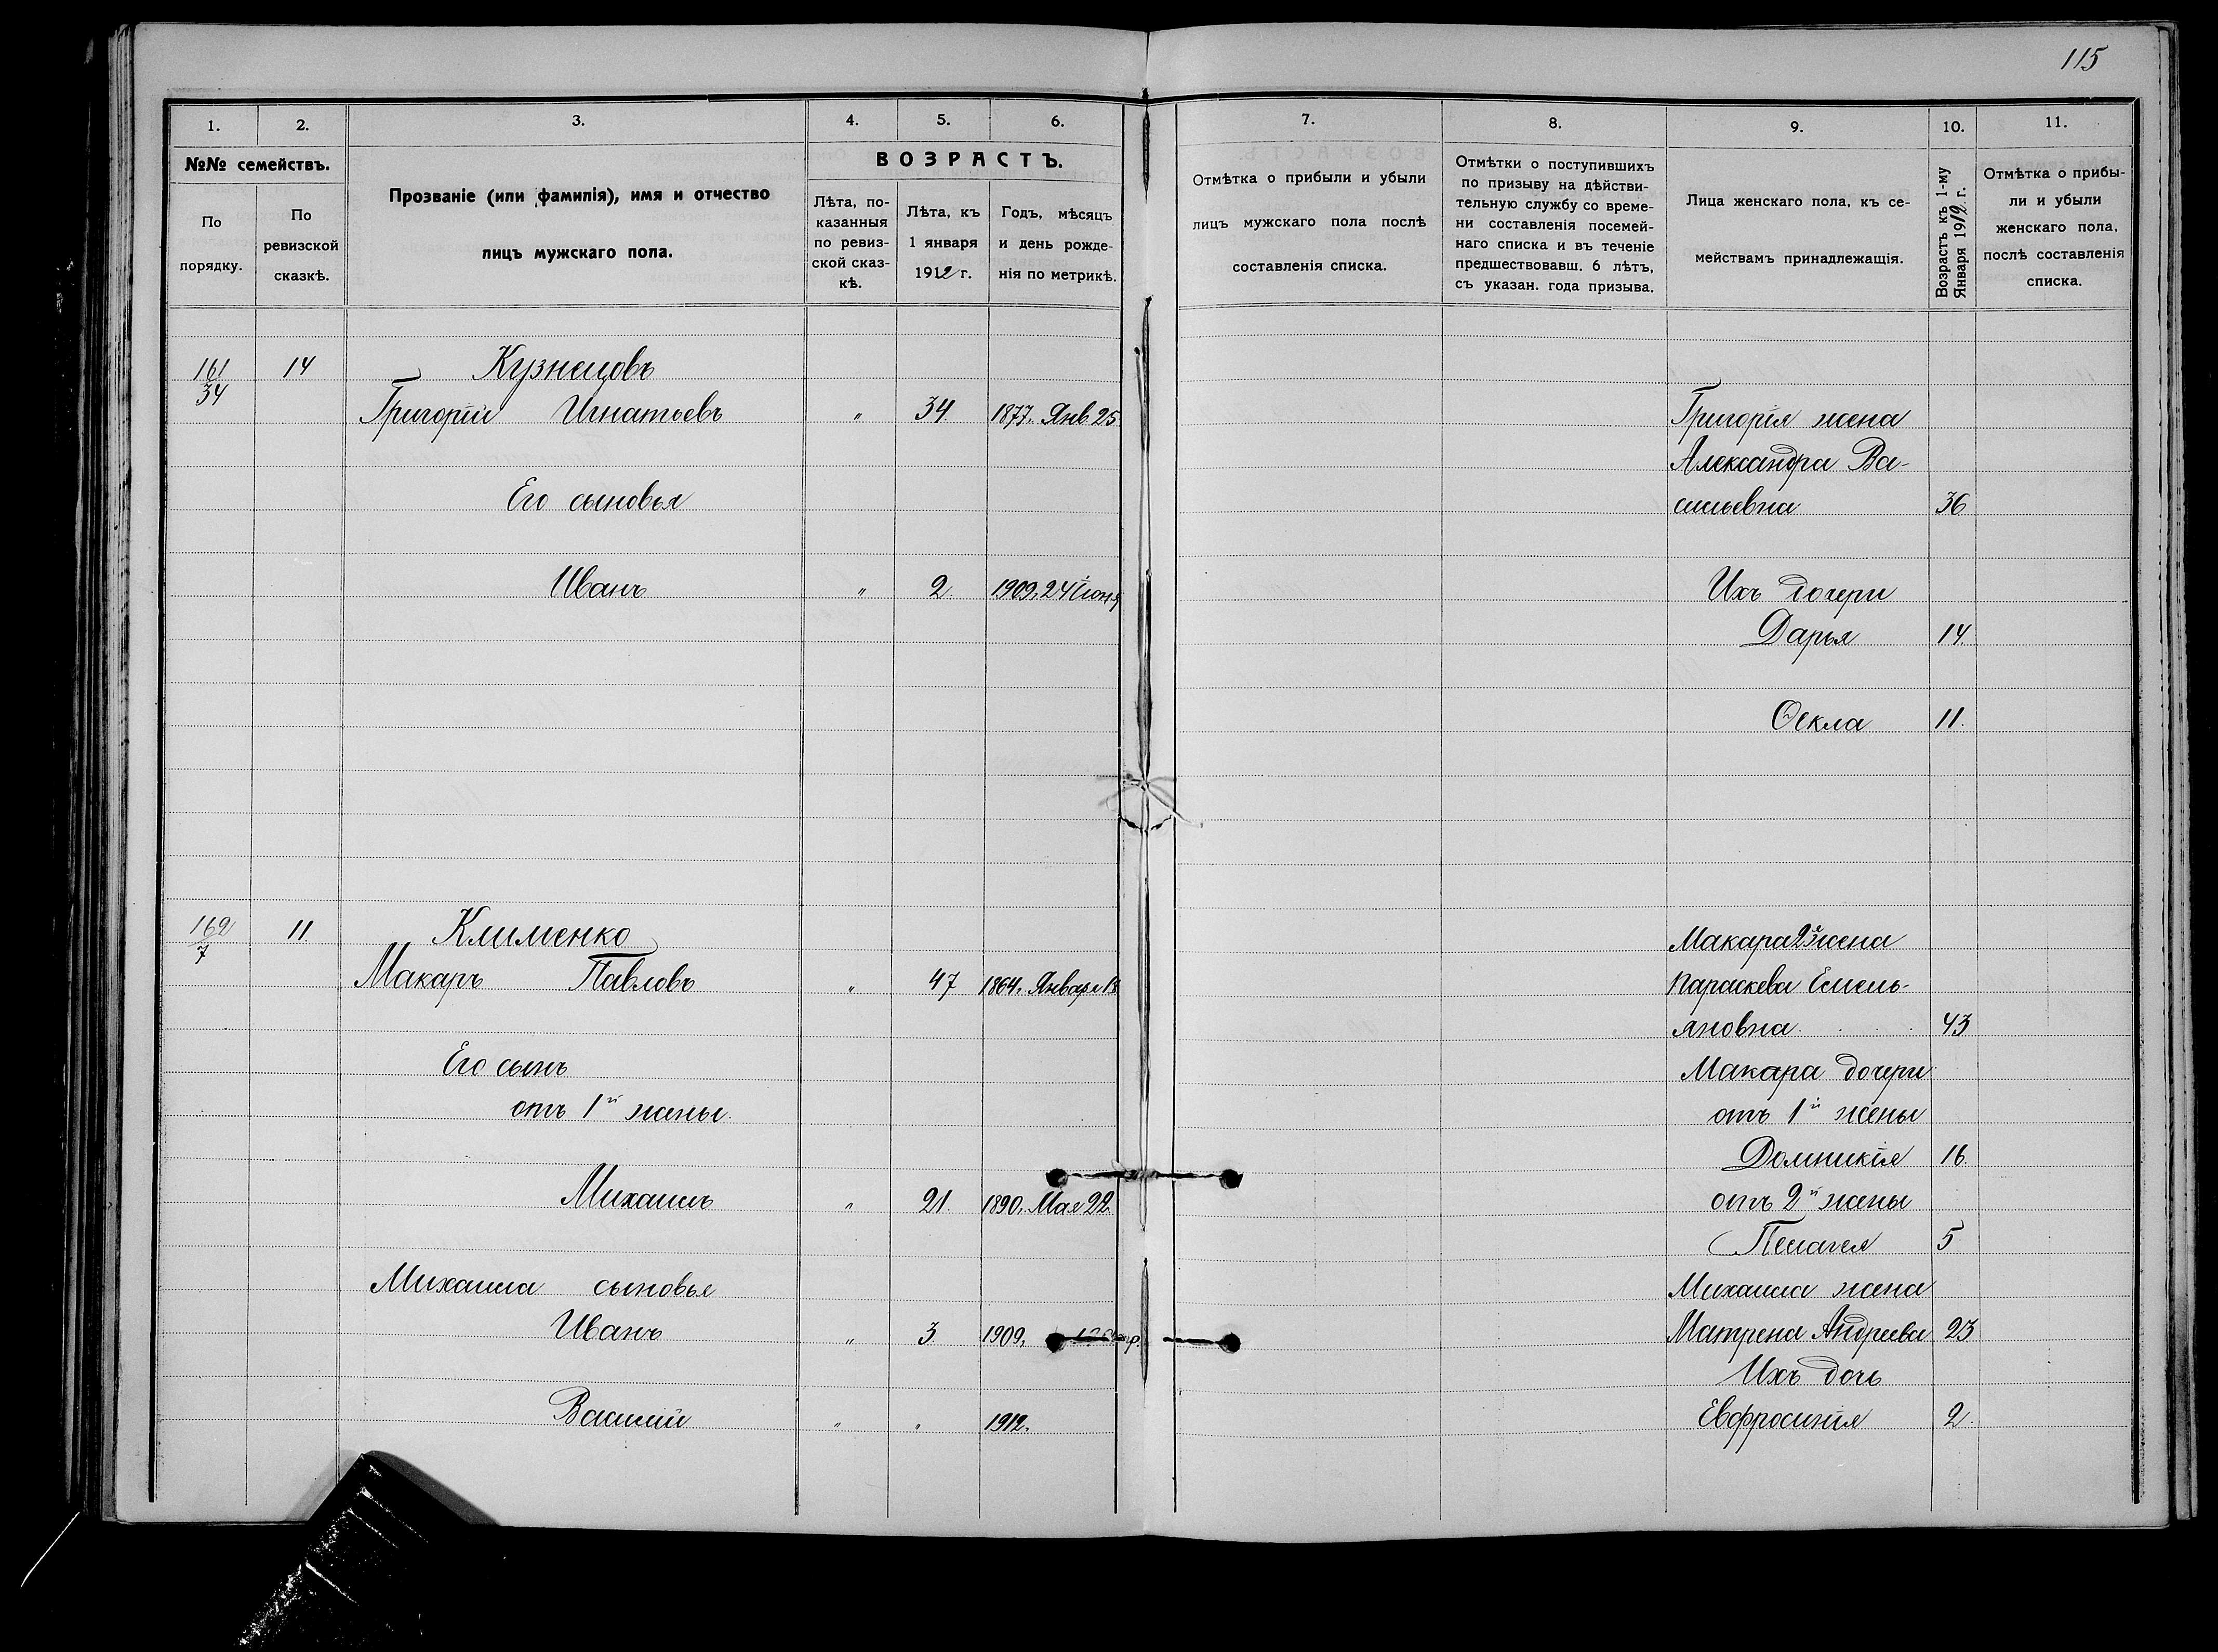 115
1. 2. 3. 4. 5. 6. 7. 8. 9. 10. 11.
№№ семействъ.
По порядку.
По ревизской сказкѣ.
Прозваніе (или фамилія), имя и отчество
лицъ мужскаго пола.
ВОЗРАСТЪ.
Лѣта, по-
казанныя
по ревиз-
ской сказ-
кѣ.
Лѣта, къ
1 января
1912 г.
Годъ, мѣсяцъ
и день рожде-
нія по метрикѣ.
Отмѣтка о прибыли и убыли
лицъ мужскаго пола послѣ
составленія списка.
Отмѣтки о поступившихъ
по призыву на дѣйстви-
тельную службу со време-
ни составленія посемей-
наго списка и въ теченіе
предшествовавш. 6 лѣтъ,
съ указан. года призыва.
Лица женскаго пола, къ се-
мействамъ принадлежащія.
Возрастъ къ 1-му
Января 1912 г.
Отмѣтка о прибы-
ли и убыли
женскаго пола,
послѣ составленія
списка.
161 14 Кузнецовъ
34
Григорій Игнатьевъ " 34. 1877. Янв. 25
Его сыновья
Иванъ " 2. 1909, 24 Іюня
Григорія жена
Александра Ва-
сильевна 36
Ихъ дочери
Дарья 14.
Ѳекла 11.
162 11. Клименко
7
Макаръ Павловъ " 47 1864. Января 18
Его сынъ
отъ 1й жены.
Михаилъ " 21. 1890. Мая 22.
Михаила сыновья
Иванъ " 3 1909,
Василій " " 1912.
Макара 2я жена
Параскева Емель-
яновна 43
Макара дочери
отъ 1й жены
Домникія 16.
отъ 2й жены
Пелагея 5
Михаила жена
Матрена Андреева 23
Ихъ дочь
Евфросинія 2.